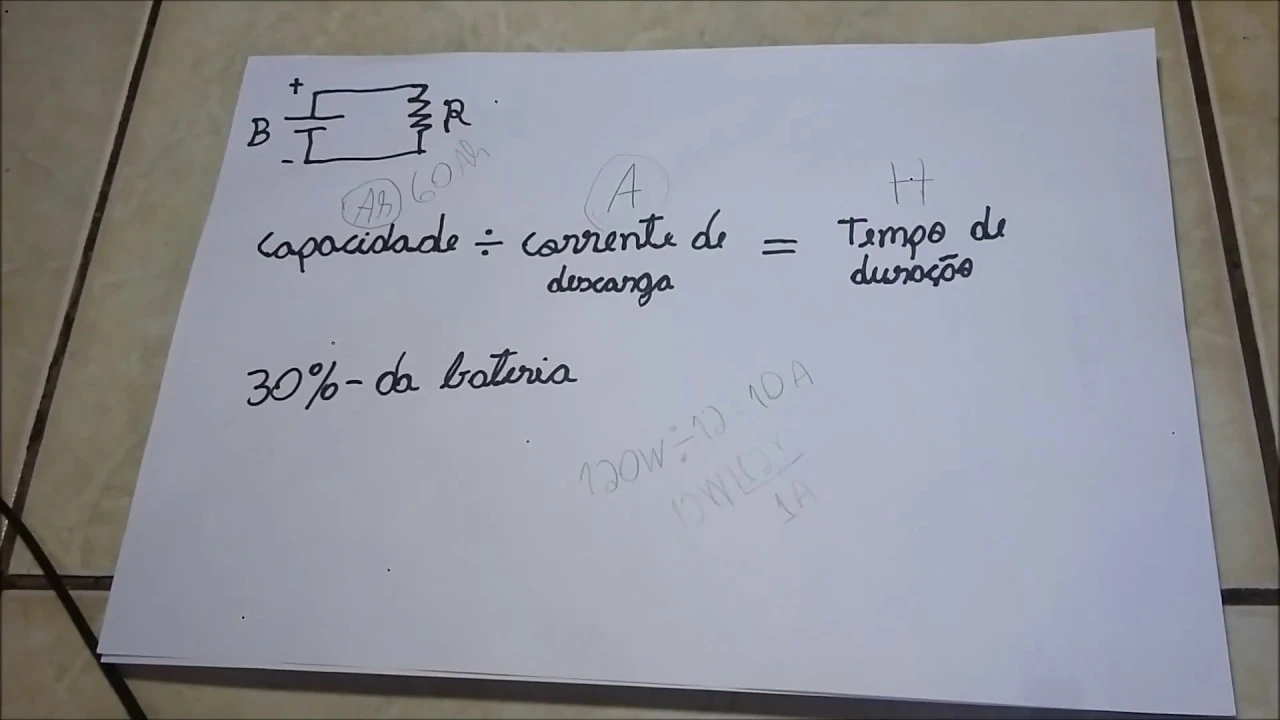 +
B
R
-
Ah 60 Ah
A
H
capacidade ÷ corrente de descarga = Tempo de duração
30% - da bateria
120W ÷ 12 = 10A
12W
1A